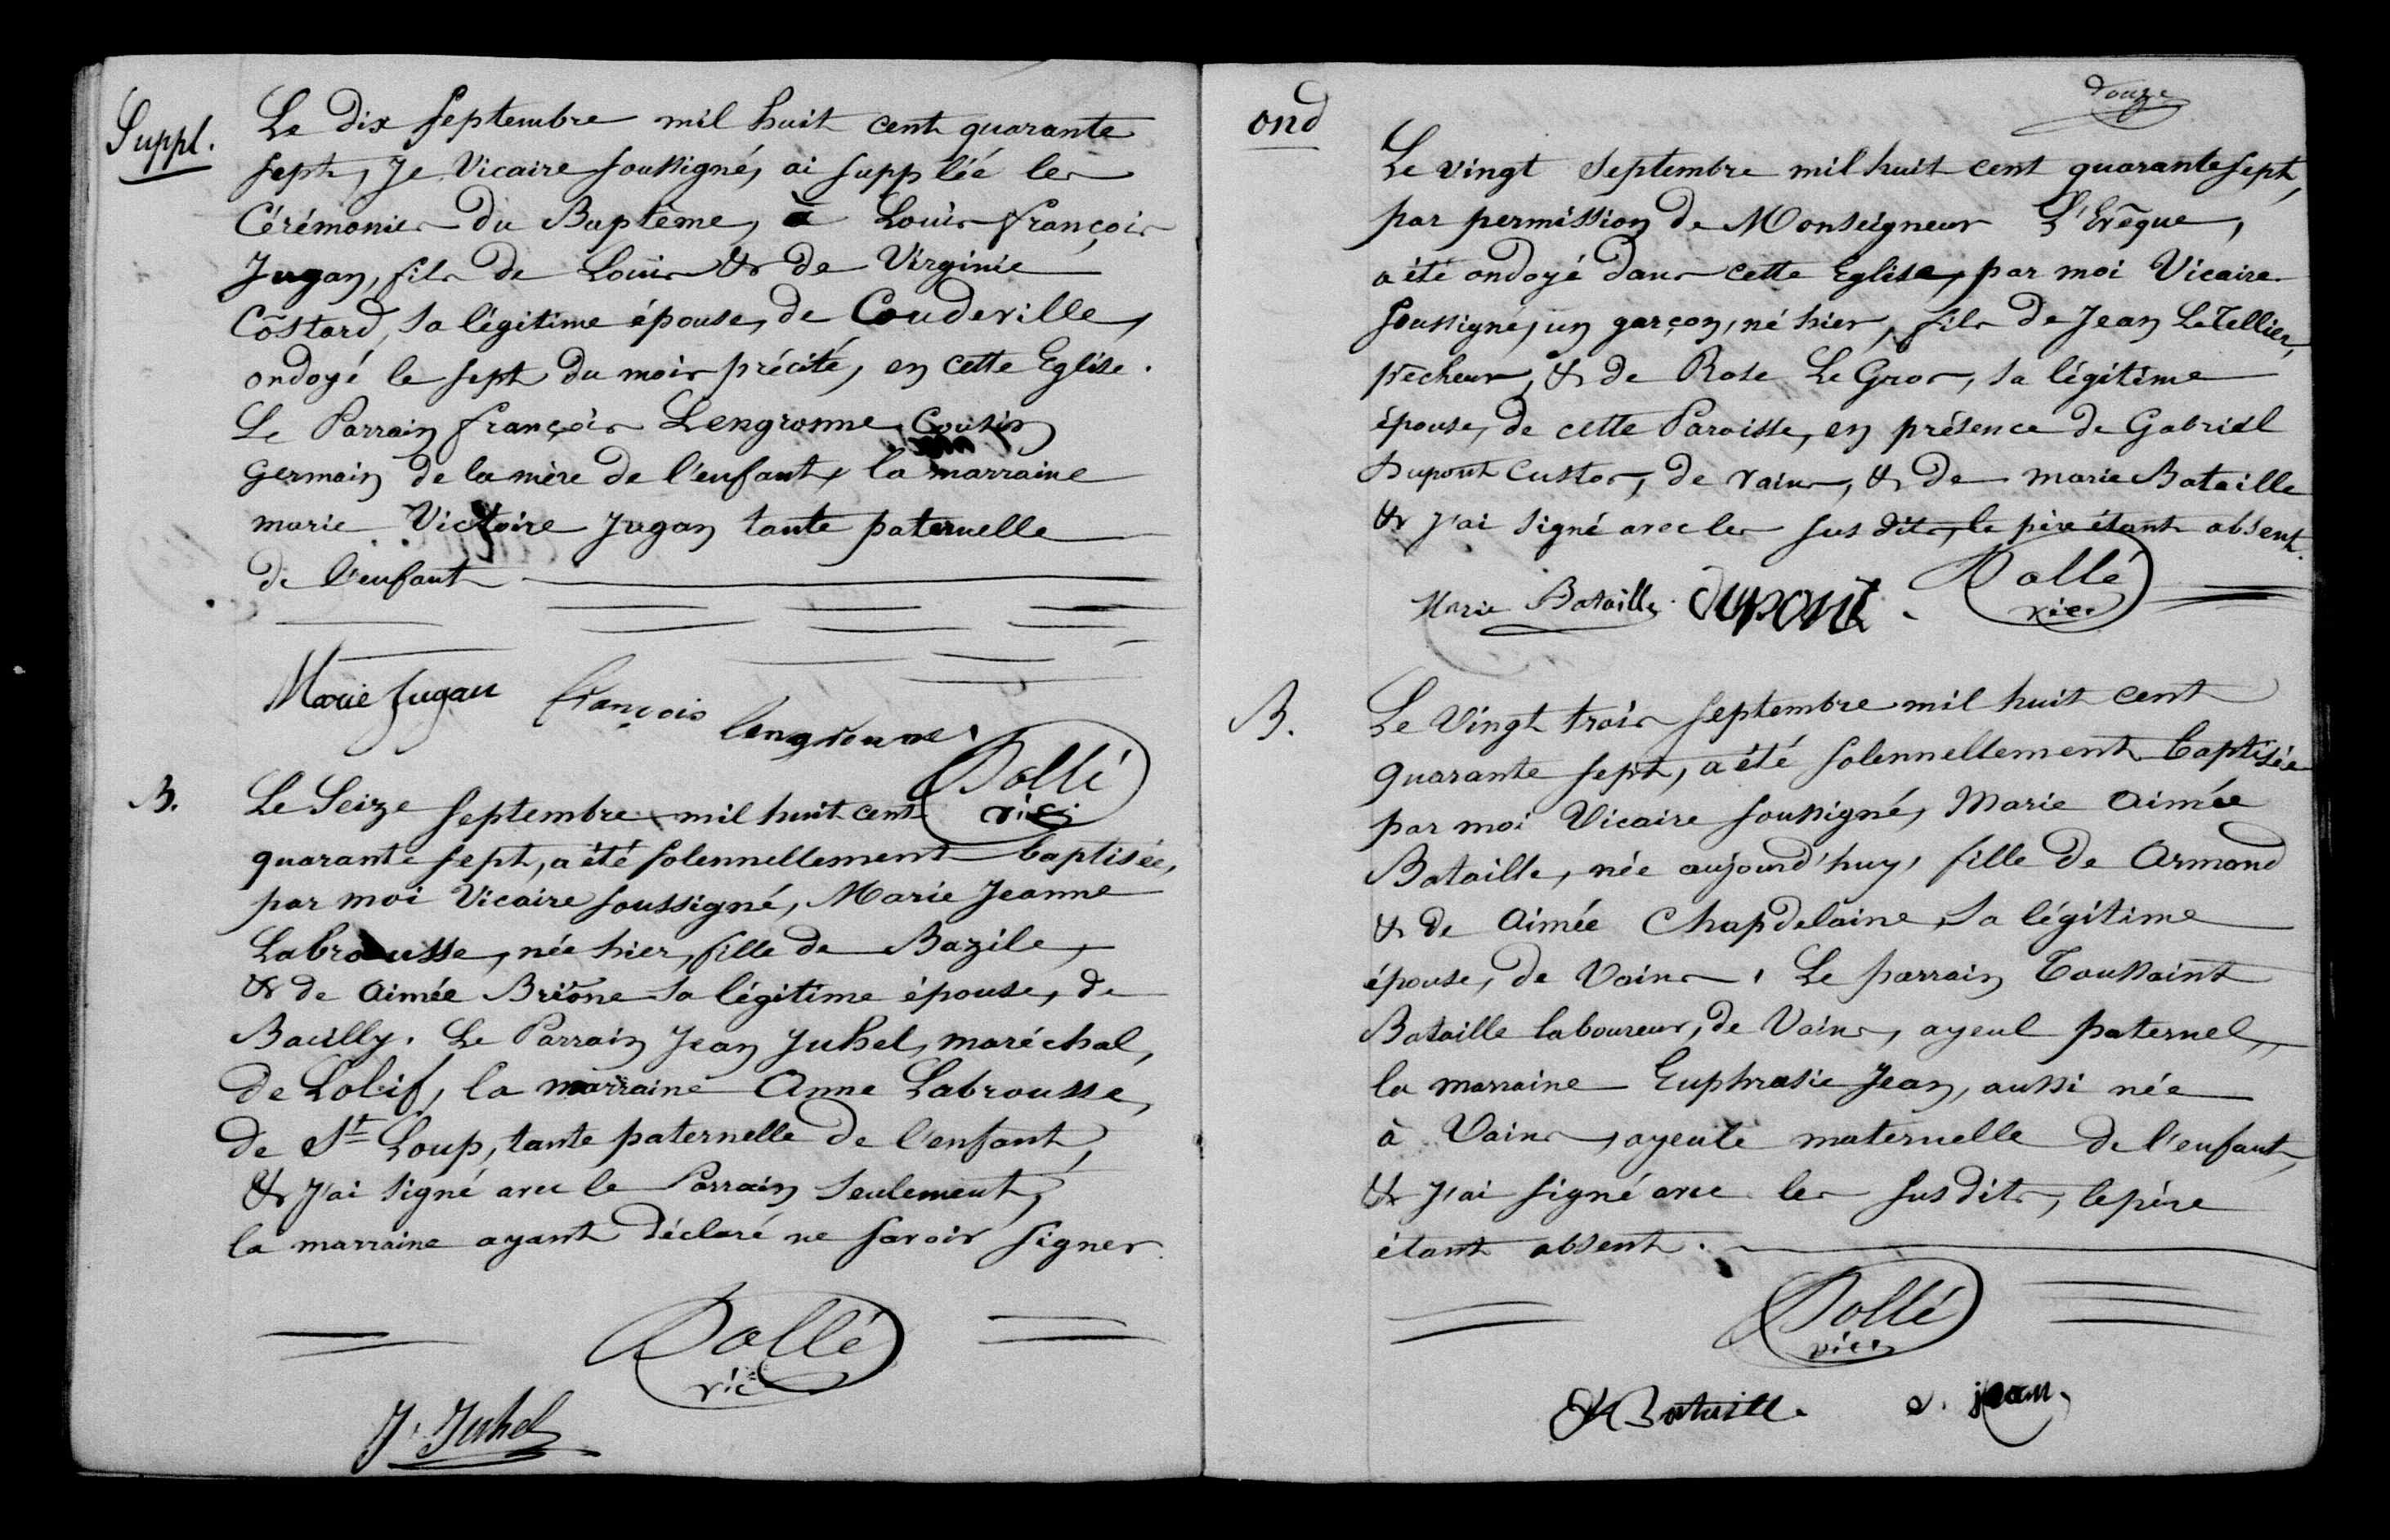 Suppl.
Le dix septembre mil huit cent quarante
sept, Je Vicaire soussigné, ai suppléé les
Cérémonies du Baptême, à Louis François
Jugan, fils de Louis & de Virginie
Côstard, sa légitime épouse, de Coudeville,
ondoyé le sept du mois précité, en cette Eglise.
Le Parrain françois Lengronne Cousin
germain de la mère de l'enfant, la marraine
marie Victoire Jugan tante paternelle
de l'enfant
Marie Jugan françois lengronne.
Dollé
vic.
B.
Le Seize septembre mil huit cent
quarante sept, a été solennellement baptisée,
par moi Vicaire soussigné, Marie Jeanne
Labrousse, née hier, fille de Bazile,
& de Aimée Briône sa légitime épouse, de
Bacilly. Le Parrain Jean Juhel, maréchal,
de Lolif, la marraine Anne Labrousse,
de St Loup, tante paternelle de l'enfant,
& j'ai signé avec le Parrain seulement,
la marraine ayant déclaré ne savoir signer.
Dollé
vic
J. Juhel
douze
ond
Le vingt septembre mil huit cent quarante sept,
par permission de Monseigneur L'Evêque,
a été ondoyé dans cette Eglise, par moi Vicaire
soussigné, un garçon, né hier, fils de Jean LeTellier,
pêcheur, & de Rose Le Gros, sa légitime
épouse, de cette Paroisse, en présence de Gabriel
Dupont Custos, de vains, & de marie Bataille
& j'ai signé avec les sus dits, le père étant absent.
Marie Bataille. dupont.
Dollé
vic.
B.
Le Vingt trois septembre mil huit cent
quarante sept, a été solennellement baptisée
par moi Vicaire soussigné, Marie Aimée
Bataille, née aujourd'huy, fille de Armand
& de Aimée Chapdelaine, sa légitime
épouse, de Vains. Le parrain Toussaint
Bataille laboureur, de Vains, ayeul paternel,
la marraine Euphrasie Jean, aussi née
à Vains, ayeule maternelle de l'enfant,
& j'ai signé avec les susdits, le père
étant absent.
Dollé
vic
Bataille. e. jean.